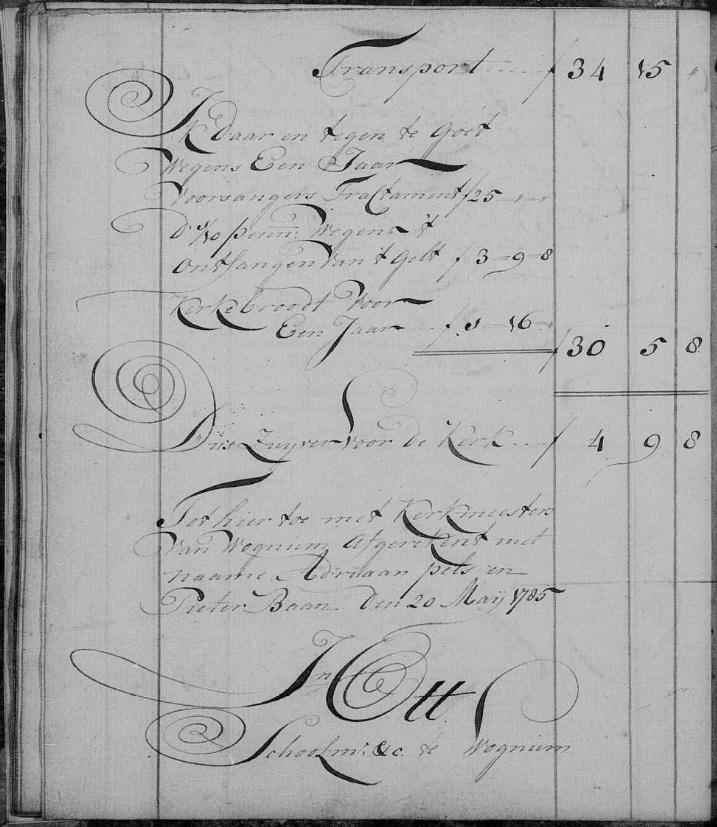 Transport ..... f 34 15 "
Ik Daar en tegen te Goet
Wegens Een Jaar
Voorsangers Tractament f 25 - " - "
D' 10 penn: Wegens 't
Ontfangen Van 't Gelt f 3 - 9 - 8
Kerkebroodt Voor
Een Jaar .. f 1 - 16 -
f 30 5 8
Dus Zuyver Voor de Kerk ... f 4 9 8
Tot hier toe met Kerkmeesters
Van Wognum Afgerekent met
naame Adriaan pels en
Pieter Baan Den 20 Maij 1785
Jn Ott
Schoolmr: &c. te Wognum